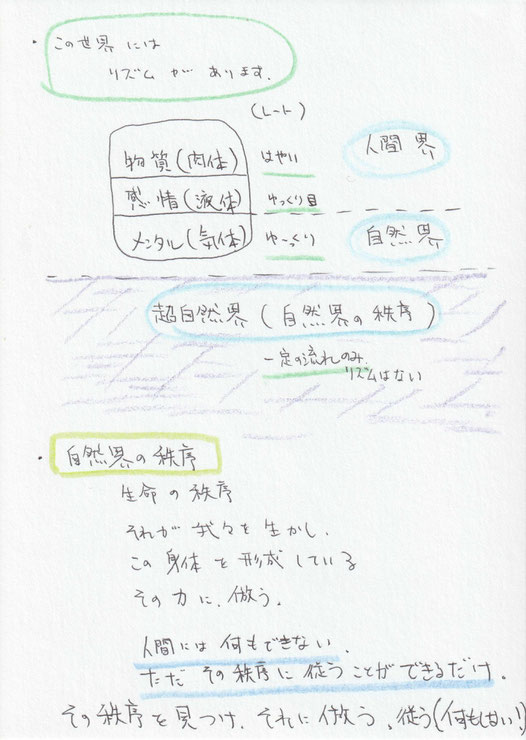 ・この世界には
リズムがあります。
(レート)
物質(肉体) はやい 人間界
感情(液体) ゆっくり目
メンタル(気体) ゆーっくり 自然界
超自然界(自然界の秩序)
一定の流れのみ.
リズムはない
・自然界の秩序
生命の秩序
それが我々を生かし.
この身体を形成している
その力に.倣う.
人間には何もできない.
ただその秩序に従うことができるだけ.
その秩序を見つけ.それに倣う、従う(何もしない!)